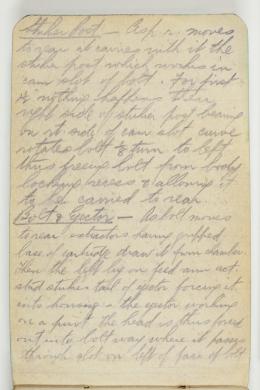 Striker Post — As p. r. moves
to rear it carries with it the
striker post which works in
cam slot of bolt. For first
nothing happens then
right side of striker post bearing
on rt side of cam slot curve
rotates bolt turn to left
thus freeing bolt from body
locking recess & allowing it
to be carried to rear
Bolt & Ejector — As bolt moves
to rear extractors having gripped
base of cartridge draw it from chamber.
Then the left lug on feed arm act.
stud strikes tail of ejector forcing it
into housing — the ejector working
on a pivot the head is thus forced
out into bolt way where it passes
through slot on left of face of bolt